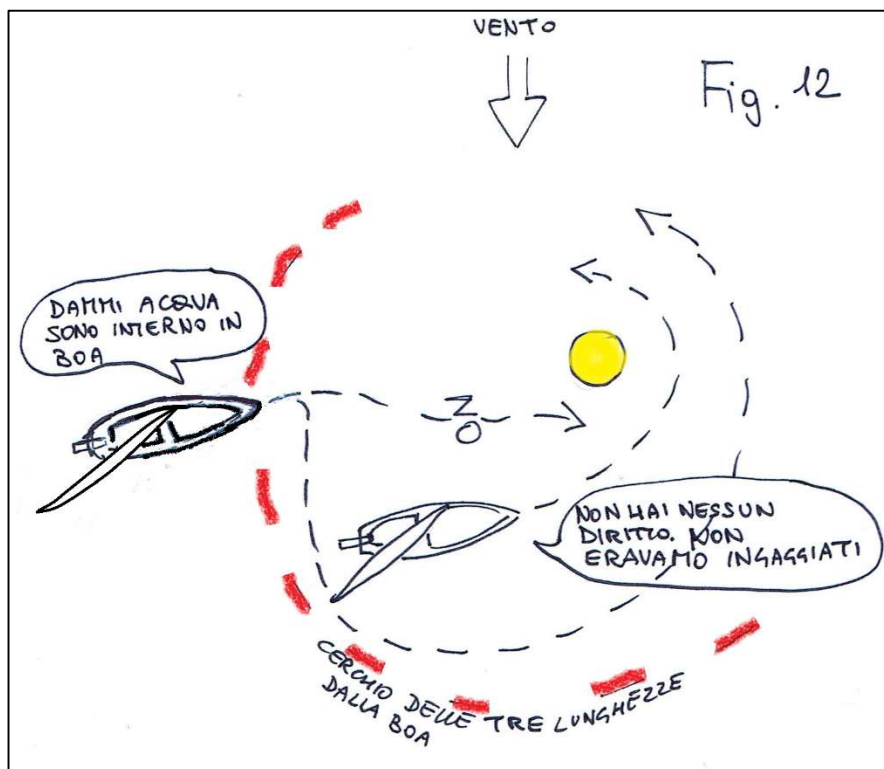 VENTO
Fig. 12
DAMMI ACQUA
SONO INTERNO IN
BOA
NO
NON HAI NESSUN
DIRITTO. NON
ERAVAMO INGAGGIATI
CERCHIO DELLE TRE LUNGHEZZE
DALLA BOA